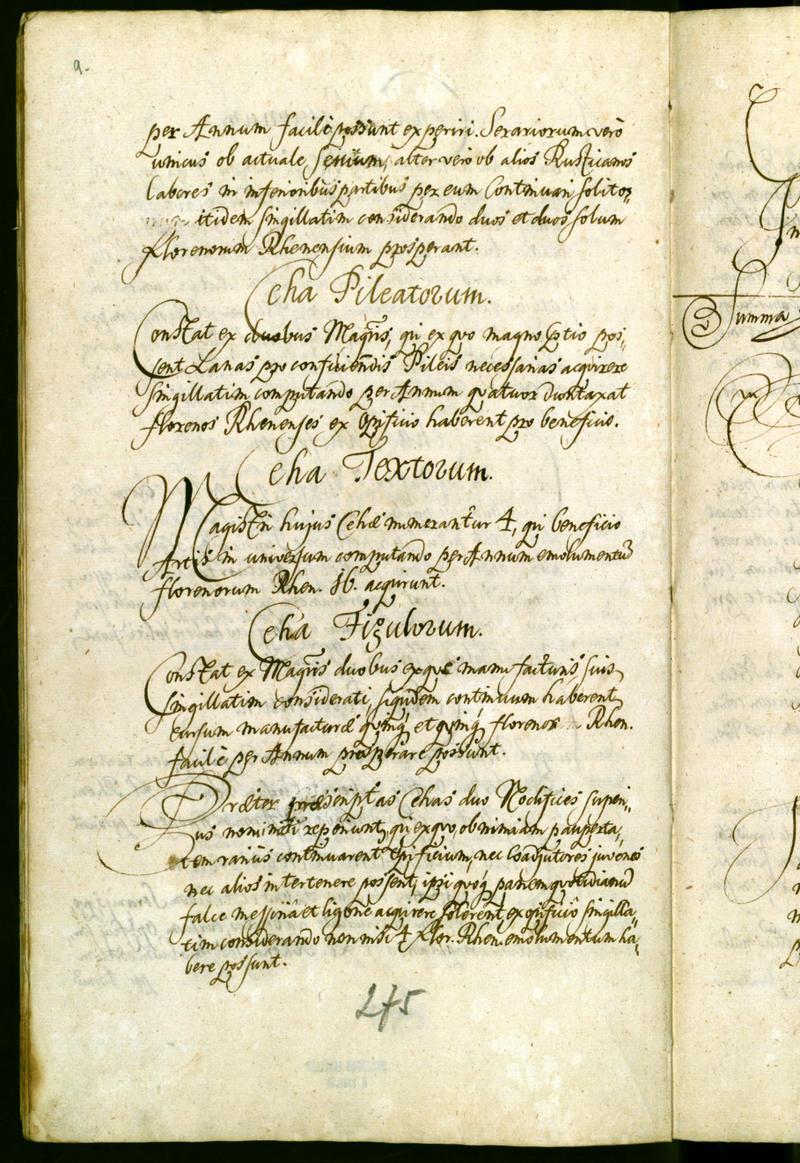 9.
per Annum facilè possunt experiri. Serariorum verò
unicus ob actuale Senium, alter verò ob alios Rusticanos
labores in inferioribus partibus per eum Continuari solitos,
itidem singillatim considerando duos et duos solum
florenorum Rhenensium prosperant.
Ceha Pileatorum.
Constat ex duobus Magris, qui ex quo magno pretio pos-
sent Lanas pro conficiendis Pileis necessarias acquirere
singillatim computando per Annum quatuor duntaxat
florenos Rhenenses ex Opificio haberent pro beneficio.
Ceha Textorum.
Magistri hujus Cehæ numerantur 4, qui beneficio
Artis in universum computando per Annum emolumentū
florenorum Rhen. 16. acqrunt.
Ceha Figulorum.
Constat ex Magris duobus ex quo manufacturis suis
singillatim considerati, siquidem continuum haberent
cursum manufacturæ quinq et quinq florenos Rhen.
facilè per Annum prosperare possunt.
Præter præscriptas Cehas duo Nodifices superi,
us nominati reperiunt, qui ex quo ob nimiam pauperta,
tem rariùs continuarent Opificium, nec Coadjutores juvenes
nec alios intertenere possent, ipsi quoq panem quotidianū
falce messoria et ligone acquirere solerent, ex opificio singilla,
tim considerando non nisi 4 Flor. Rhen. emolumentum ha,
bere possunt.
245
Summa